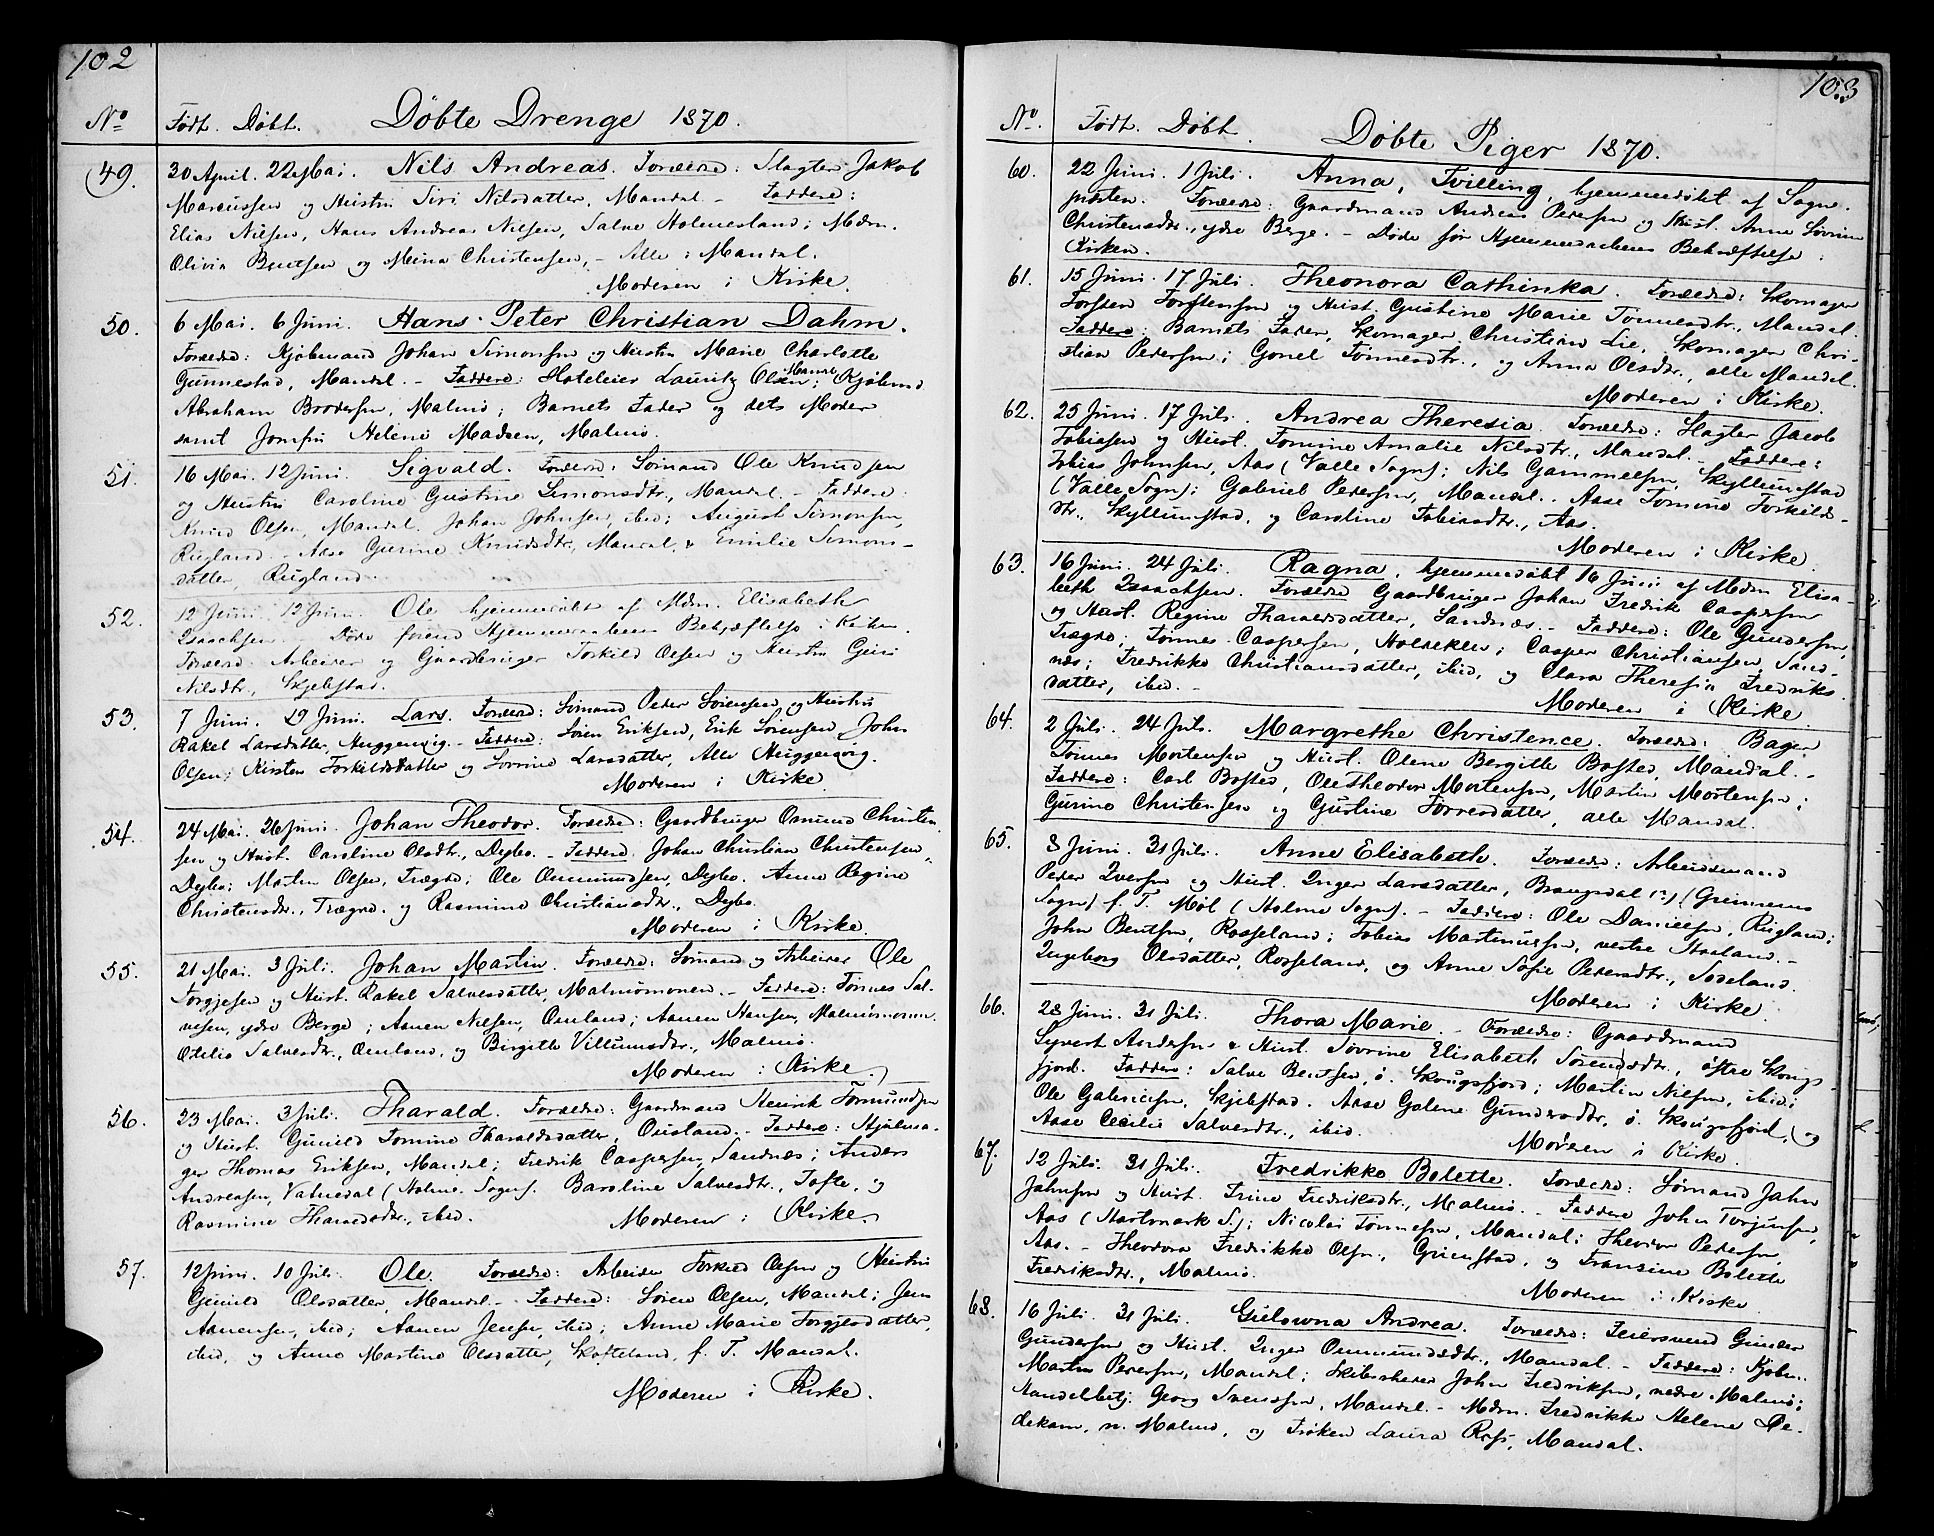 102
No Født. Døbt. Døbte Drenge 1870.
49. 30 April. 22 Mai. Nils Andreas. Forældre: Slagter Jakob
Marcussen og Hustru Siri Nilsdatter, Mandal. - Faddere:
Elias Nielsen, Hans Andreas Nielsen, Salve Holmesland; Mdm.
Olivia Bentsen og Mina Christensen, - Alle i Mandal.
Moderen i Kirke.
50. 6 Mai. 6 Juni. Hans Peter Christian Dahm.
Forældre: Kjøbmand Johan Simonsen og Hustru Marie Charlotte
Gunnestad, Mandal. - Faddere: Hoteleier Lauritz Olsen, Mandal; Kjøbmd
Abraham Brodersen, Malmø; Barnets Fader og dets Moder
samt Jomfru Helene Madsen, Malmø.
51. 16 Mai. 12 Juni. Sigvald. Forældre: Sømand Ole Knudsen
og Hustru Caroline Gustine Simonsdtr., Mandal. - Faddere:
Knud Olsen, Mandal, Johan Johnsen, ibid; August Simonsen,
Rugland. - Aase Gurine Knudsdtr., Mandal, & Emilie Simons-
datter, Rugland.
52. 12 Juni. 12 Juni. Ole hjemmedøbt af Mdm. Elisabeth
Isaachsen. - Døde forend Hjemmedaabens Bekræftelse i Kirken.
Forældre: Arbeider og Gaardbruger Torkild Olsen og Hustru Guri
Nilsdtr., Skjebstad.
53. 7 Juni. 19 Juni. Lars. Forældre: Sømand Peder Sørensen og Hustru
Rakel Larsdatter, Huggenvig. - Faddere: Søren Eriksen, Erik Sørensen, John
Olsen; Kirsten Torkildsdatter og Sørine Larsdatter, Alle Huggenvig.
Moderen i Kirke.
54. 24 Mai. 26 Juni. Johan Theodor. Forældre: Gaardbruger Osmund Christen-
sen og Hust. Caroline Olsdtr., Dybo. - Faddere: Johan Christian Christensen,
Dybo; Martin Olsen, Trægde; Ole Ommundsen, Dybo. Anne Regine
Christensdtr., Trægde. og Rasmine Christiansdtr., Dybo.
Moderen i Kirke.
55. 21 Mai. 3 Juli. Johan Martin. Forældre: Sømand og Arbeider Ole
Torgjesen og Hust. Rakel Salvesdatter, Malmømonen. - Faddere: Tønnes Sal-
vesen, ydre Berge; Aanen Nilsen, Omland; Aanen Hansen, Malmømonen.
Otelia Salvesdtr., Omland, og Birgitte Villumsdtr., Malmø.
Moderen i Kirke.
56. 23 Mai. 3 Juli. Tharald. Forældre: Gaardmand Henrik Tormundsen
og Hust. Gunild Tomine Tharaldsdatter, Ousland. - Faddere: Hjulma-
ger Thomas Eriksen, Mandal; Fredrik Caspersen, Sandnæs; Anders
Andreasen, Valnedal (Holme Sogn). Baroline Salvesdtr., Tofte, og
Rasmine Tharaldsdtr., ibid.
Moderen i Kirke.
57. 12 Juni. 10 Juli. Ole. Forældre: Arbeider Torkild Olsen og Hustru
Gunild Olsdatter, Mandal. - Faddere: Søren Olsen, Mandal; Jens
Aanensen, ibid; Aanen Jensen, ibid; Anne Marie Torgjersdatter,
ibid, og Anne Martine Olsdatter, Skofteland, f. T. Mandal.
Moderen i Kirke.
103
No. Født. Døbt. Døbte Piger 1870.
60. 22 Juni. 1 Juli. Anna, Tvilling, hjemmedøbt af Sogne-
præsten. Forældre: Gaardmand Andreas Pedersen og Hust. Anne Sørine
Christensdtr., ydre Berge. - Døde før Hjemmedaabens Bekræftelse i
Kirken.
61. 15 Juni. 17 Juli. Theonora Cathinka. Forældre: Skomager
Torsten Torstensen og Hust. Gustine Marie Tønnesdtr., Mandal.
Faddere: Barnets Fader, Skomager Christian Lie, Skomager Chri-
stian Pedersen; Gonel Tønnesdtr., og Anna Olsdtr., alle Mandal.
Moderen i Kirke.
62. 25 Juni. 17 Juli. Andrea Theresia. Forældre: Slagter Jacob
Tobiasen og Hust. Tomine Amalie Nilsdtr., Mandal. - Faddere:
Tobias Johnsen, Aas (Valle Sogn); Nils Gammelsen, Skyllumstad
(Valle Sogn); Gabriel Pedersen, Mandal. - Aase Tomine Torkilds-
dtr., Skyllumstad, og Caroline Tobiasdtr., Aas.
Moderen i Kirke.
63. 16 Juni. 24 Juli. Ragna, hjemmedøbt 16 Juni af Mdm. Elisa-
beth Isaachsen. Forældre Gaardbruger Johan Fredrik Caspersen
og Hust. Regine Tharaldsdatter, Sandnæs. - Faddere: Ole Gundersen,
Trægde; Tønnes Caspersen, Holrekken; Casper Christiansen, Sand-
næs; Fredrikke Christiansdatter, ibid, og Clara Theresia Fredriks-
datter, ibid. -
Moderen i Kirke.
64. 2 Juli. 24 Juli. Margrethe Christence. Forældre: Bager
Tønnes Mortensen og Hust. Olene Bergitte Bosted, Mandal. -
Faddere: Carl Bosted, Ole Theodor Mortensen, Martin Mortensen;
Gurine Christensen og Gustine Torresdatter, alle Mandal.
65. 8 Juni. 31 Juli. Anne Elisabeth. Forældre: Arbeidsmand
Peder Iversen og Hust. Inger Larsdatter, Brangsdal (?) (Greimens
Sogn) f. T. Møl (Holme Sogn). - Faddere: Ole Danielsen, Rugland;
John Bentsen, Rosseland; Tobias Martinussen, vestre Haaland. -
Ingeborg Olsdatter, Rosseland, og Anne Sofie Pedersdtr., Sodeland.
Moderen i Kirke.
66. 28 Juni. 31 Juli. Thora Marie. - Forældre: Gaardmand
Syvert Andersen & Hust. Søvrine Elisabeth Sørensdtr., østre Skougs-
fjord. Faddere: Salve Bentsen, ø. Skougsfjord; Martin Nielsen, ibid;
Ole Gabrielsen, Skjebstad. Aase Golene Gundersdtr., ø. Skougsfjord, og
Aase Cecilie Salvesdtr., ibid.
Moderen i Kirke.
67. 12 Juli. 31 Juli. Fredrikke Bolette. Forældre: Sømand John
Johnsen og Hust. Trine Fredriksdtr., Malmø. - Faddere John Torjusen,
Aas (Hartmark S.); Nicolai Tønnesen, Mandal; Theodor Pedersen,
Aas. - Theodora Fredrikke Olsen, Grimstad, og Fransine Bolette
Fredriksdtr., Malmø.
Moderen i Kirke
68. 16 Juli. 31 Juli. Gulowna Andrea. Forældre: Feiersvend Gunder
Gundersen og Hust. Inger Ommundsdtr., Mandal. - Faddere: Kjøbm.
Martin Pedersen, Mandal; Skibsrheder John Fredriksen, nedre Malmø;
Handelbetj. Georg Svensen, Mandal. - Mdm. Fredrikke Helene De-
dekam, n. Malmø, og Frøken Laura Rafs, Mandal.